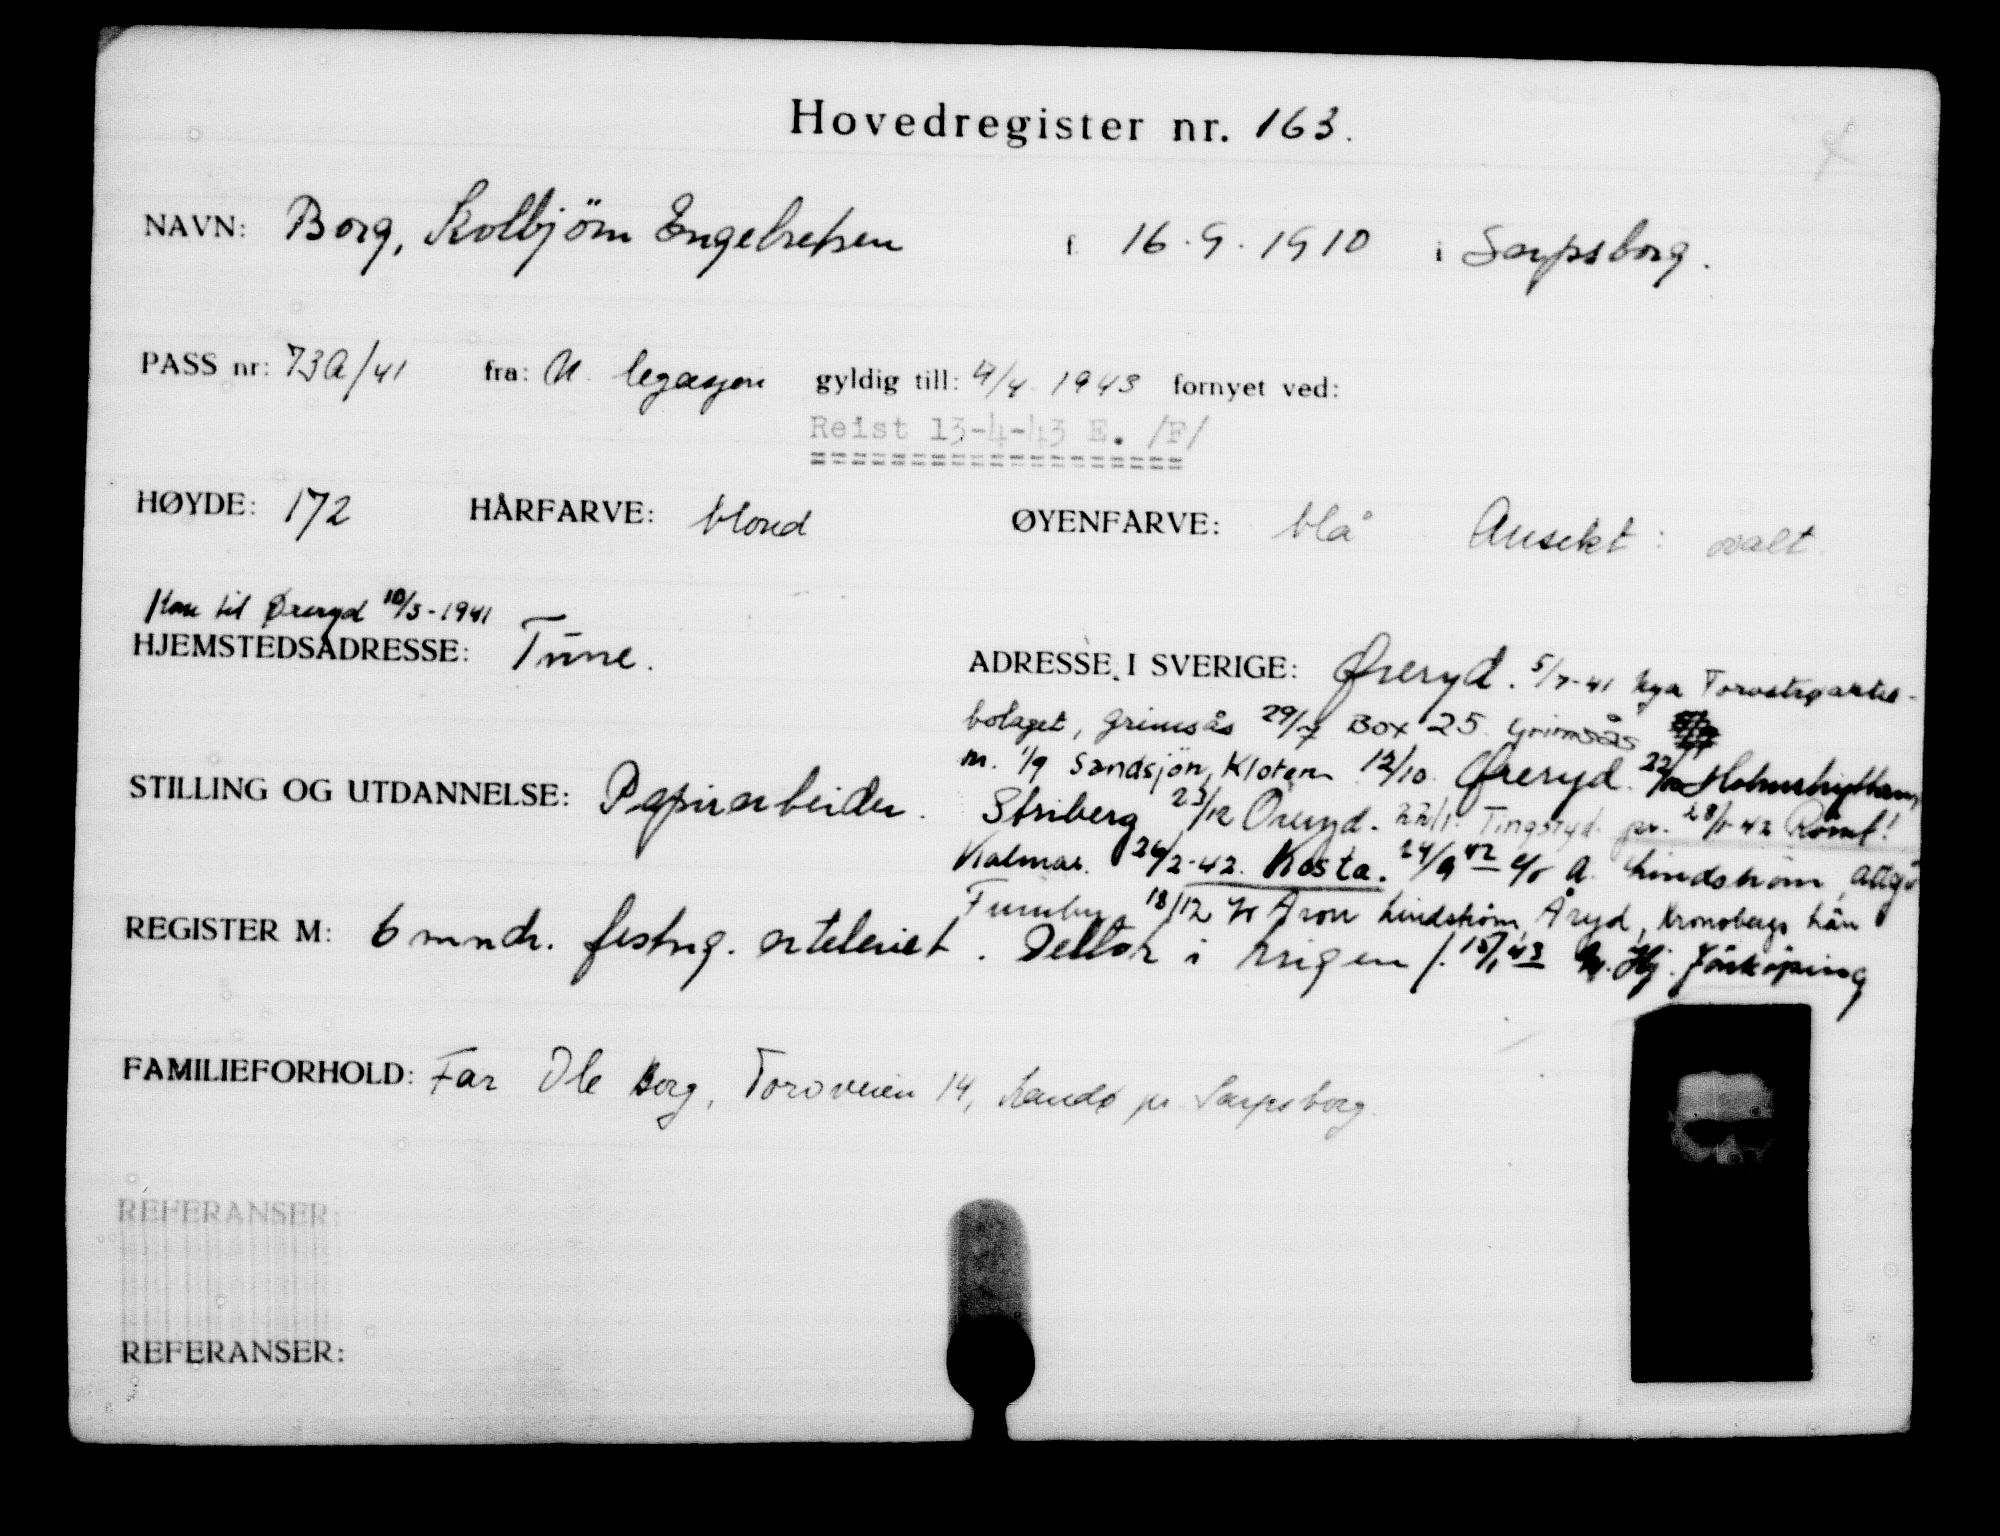 Hovedregister nr. 163.
NAVN: Borg, Kolbjörn Engebretsen f. 16.9.1910 i Sarpsborg.
PASS nr: 73A/41 fra: N. legasjon gyldig till: 4/4 1943 fornyet ved:
Reist 13-4-43 E. /F/
HØYDE: 172 HÅRFARVE: blond ØYENFARVE: blå Ansikt: ovalt
Kom til Øreryd 10/3-1941
HJEMSTEDSADRESSE: Tune. ADRESSE I SVERIGE: Øreryd. 5/7-41 Nya
bolaget, Grimsås 29/7 Box 25 Grimsås
m. 1/9 Sandsjön, Kloten 12/10. Øreryd.
STILLING OG UTDANNELSE: Papirarbeider. Striberg 23/12 Öreryd. 22/1. Tingsryd. pr. 28/1-42 Römt!
Kalmar. 26/2-42. Kosta. 24/9 42 c/o A. Lindström,
18/12 c/o Aron Lindström, Åryd, Kronobergs län
REGISTER M: 6 mndr. festng. artileriet. Deltok i krigen /. 15/1 43 Jönköping
FAMILIEFORHOLD: Far Ole Borg, Toroveien 14, Sandø pr. Sarpsborg.
REFERANSER:
REFERANSER: